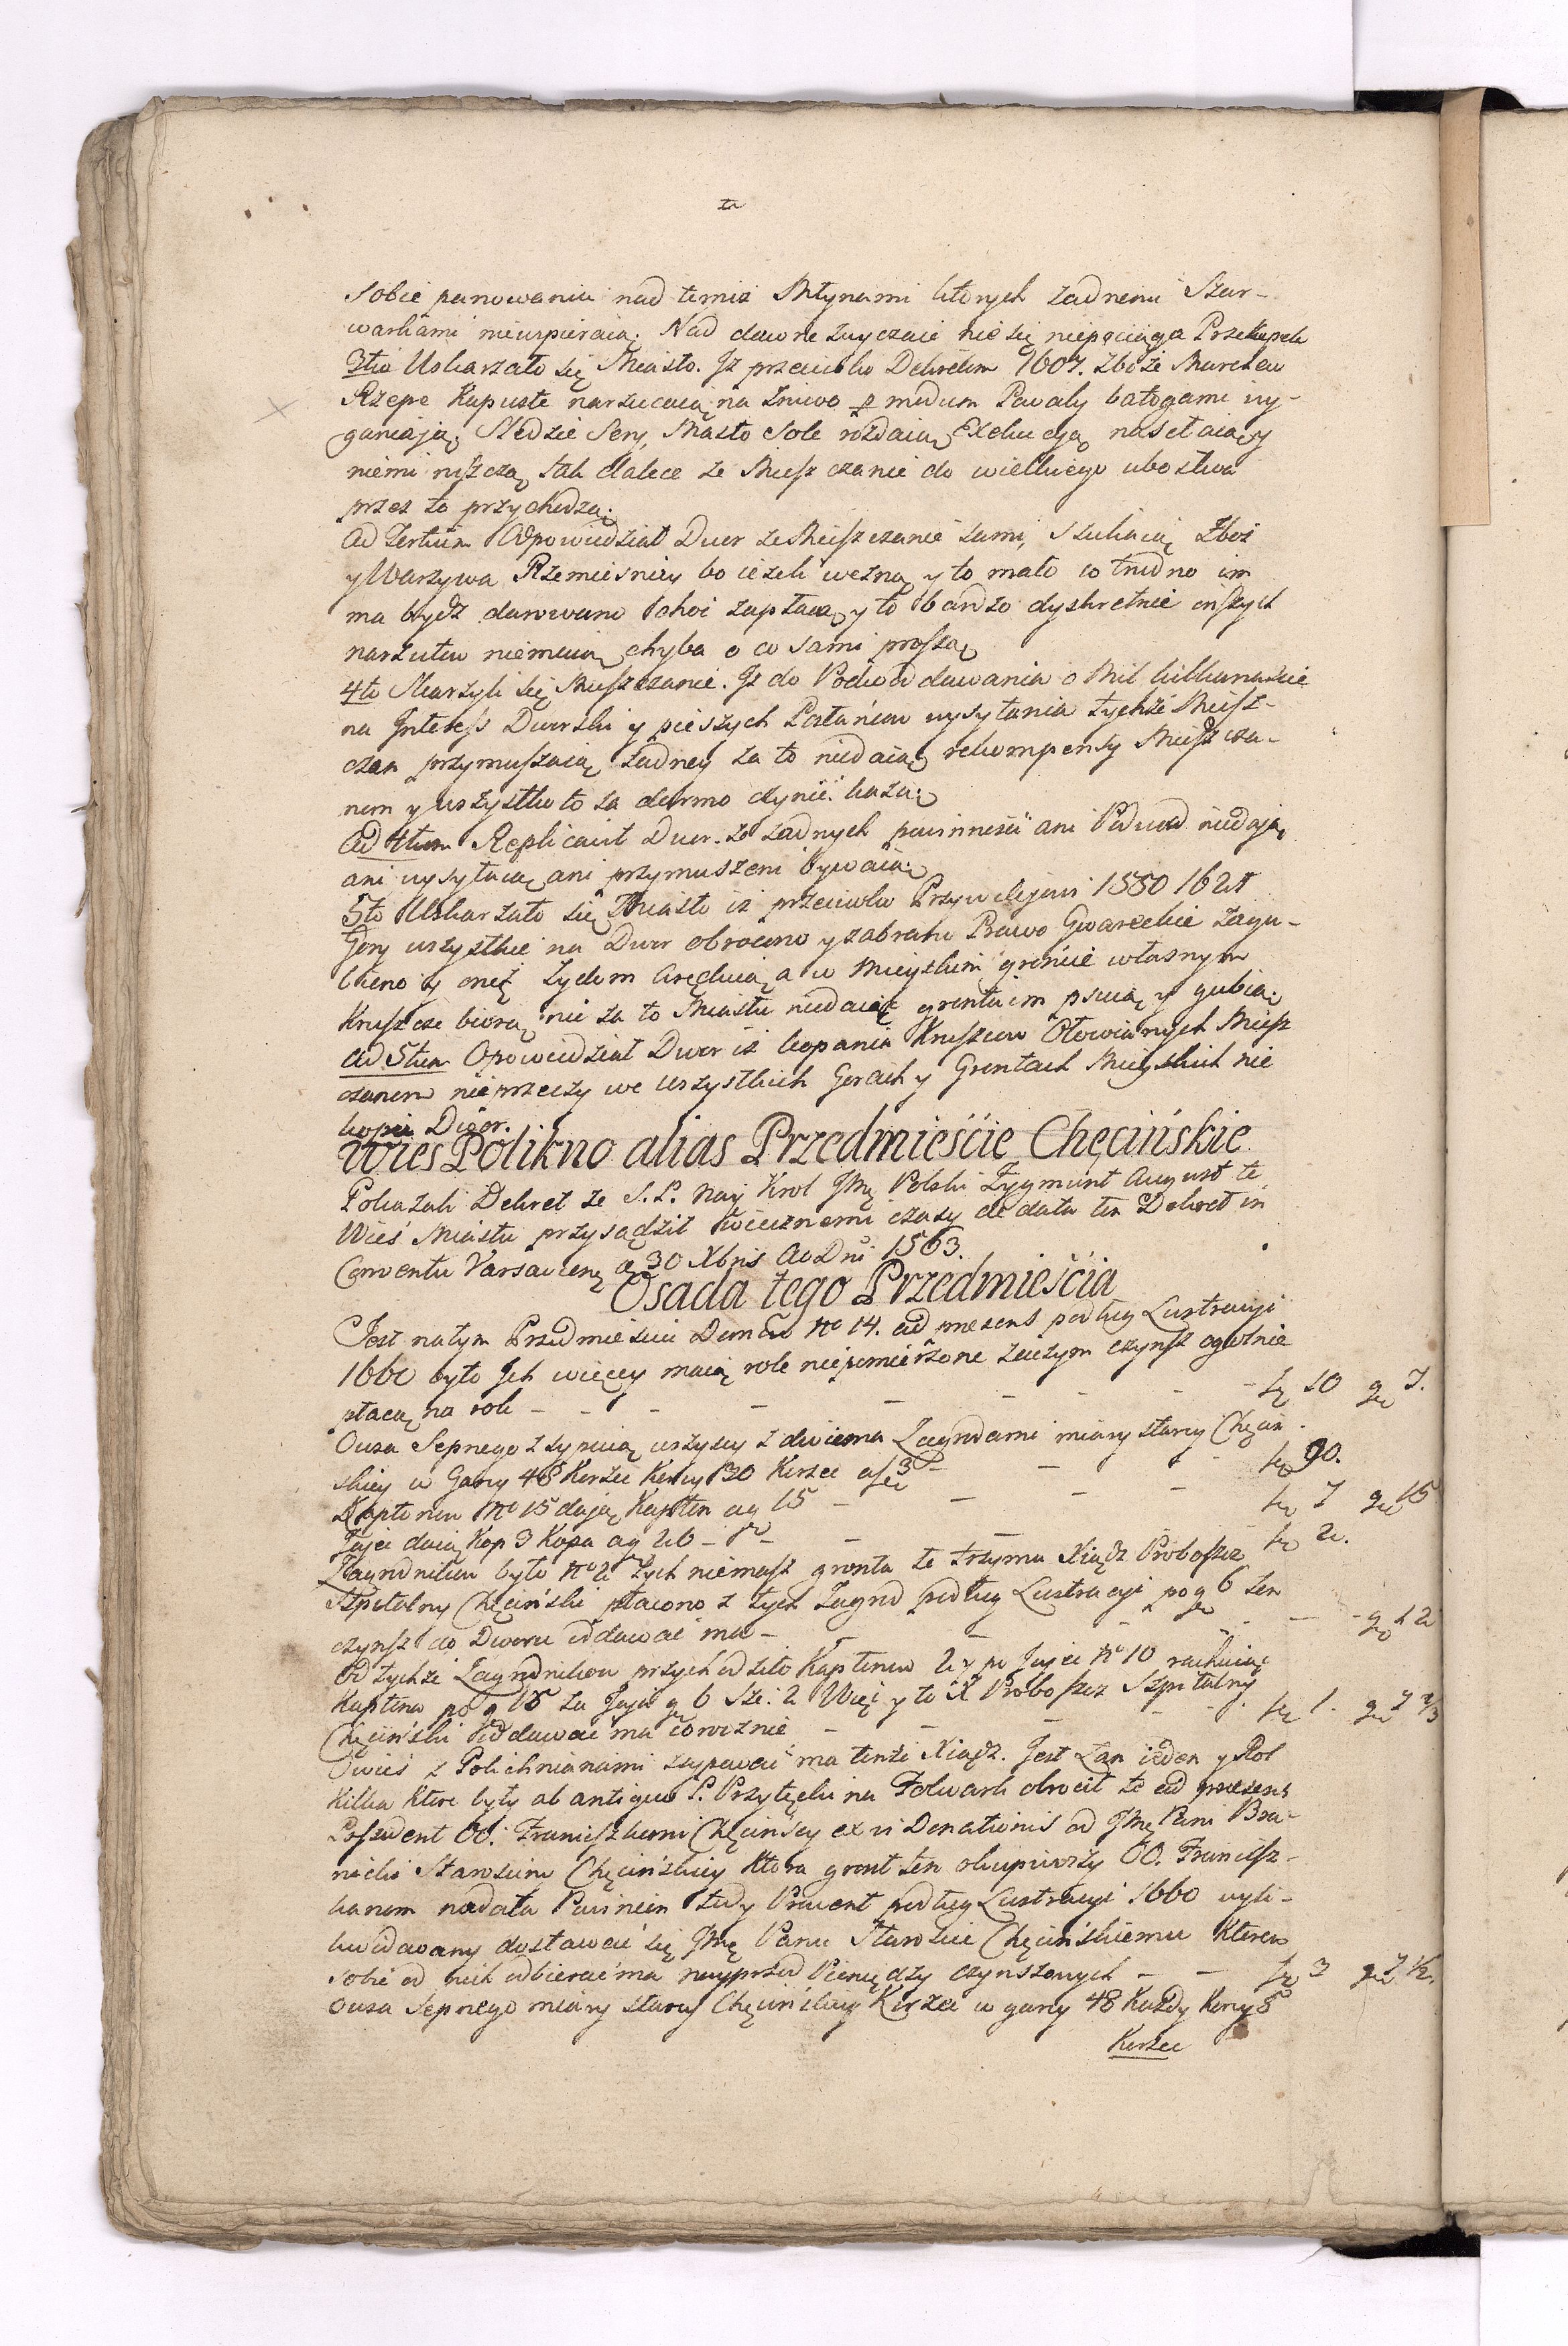 sobie panowania nad temiż Młynami których żadnemi Szar-
warkami niewspieraią. Nad dawne zwyczaie nic się niepociąga Przekupek
3tio Uskarzało się Miasto. Iż przeciwko Dekretom 1607. zboże Marchew
Rzepe Kapuste narzucaią na żniwo per modum Powaby batogami wy-
ganiaią, Sledzie Sery, Masło Sole rozdaią Exekucyą nasełaią y
niemi niszczą tak dalece że Miesczanie do wielkiego ubostwa
przez to przychodzą.
Ad Tertium Odpowiedział Dwor że Mieszczanie sami, szukaią Zboż
y Warzywa Rzemiesnicy bo ieżeli wezną y to mało co trudno im
ma bydź darowano choć zapłacą y to bardzo dyskretnie inszych
narzutow niemaią chyba o co sami proszą
4to Skarżyli się Mieszczanie. Iż do Podwod dawania o Mil kilkanaście
na Interess Dworski y pieszych Posłańcow wysyłania tychże Miesz-
czan przymuszaią żadney za to niedaiąc rekompensy Mieszcza-
nom y wszystko to za darmo czynić każą.
Ad 4tum Replicavit Dwor. że żadnych powinności ani Podwod niedają
ani wysyłaią ani przymuszeni bywaią.
5to Uskarżało się Miasto iż przeciwko Przywilejowi 1550 1624
Gory wszystkie na Dwor obrocono y zabrano Prawo Gwareckie zagu-
biono y oneż Żydom aręduią a w Mieyskim gróncie własnym
Kruszcze biorą nic za to Miastu niedaiąc gronta im psuią y gubią.
Ad 5tum Opowiedział Dwor iż kopania Kruszcow Ołowianych Miesz
czanom nieprzeczy we wszystkich Gorach y Grontach Mieyskich nie
kopie Dwór.
Wieś Polikno alias Przedmieście Chęcińskie
Pokazali Dekret że S. P. Nay Krol Jmę Polski Zygmunt August te
Wieś Miastu przysądził wiecznemi czasy de data ten Dekret in
Conventu Varsavien 30 Xbris Ao Dni 1563.
Osada tego Przedmieścia
Jest na tym Przedmieściu Domow No 14. ad presens podług Lustracyi
1660 było Jch więcey maią role niepomierzone zaczym czynsz ogolnie
płacą na rok - - - - - - - - zł 10 gr 7.
Owsa Sepnego zsypuią wszyscy z dwiema Zagrodami miary starey Chęciń-
skiey w Garcy 48 Korzec Korcy 30 Korzec a f 3 - - - - zł 90.
Kapłonow No 15 daią Kapłon a g 15 - - - - zł 7 gr 15
Jajec daią Kop 3 Kopa a g 20 - - - - zł 2.
Zagrodnikow było No 2 tych niemasz gronta te trzyma Xiądz Proboszcz
Szpitalny Chęciński płacono z tych Zagrod podług Lustracyi po g 6 ten
czynsz do Dworu oddawać ma - - - - - - gr 12
Od tychże Zagrodnikow przychodziło Kapłonow 2 y po Jajec No 10 rachuiąc
Kapłona po g 15 za Jaja g 6 Sze: 2 Więc y to X Proboszcz Szpitalny
Chęciński oddawać ma corocznie - - - - zł 1. gr 7 1/3
Owies z Polichnianami zsypować ma tenże Xiądz. Jest Łan ieden y Rol
Kilka Ktore były ab antiquo P. Przyłęcki na Folwark obrocił te ad presens
Possident OO. Franciszkani Chęcińscy ex vi Donationis od Jmę Pani Bra-
nicki Starościny Chęcińskiey Ktora gront ten okupiwszy OO. Francisz-
kanom nadała Powinien tedy Provent podług Lustracyi 1660 wyli-
kwidowany dostawać się Jmę Panu Staroscie Chęcińskiemu Ktoren
sobie od nich odbierać ma nayprzod Pieniędzy czynszowych - - zł 3 gr 7 1/2.
Owsa Sepnego miary starey Chęcińskiey Korzec w garcy 48 Każdy Korcy 5
Korzec